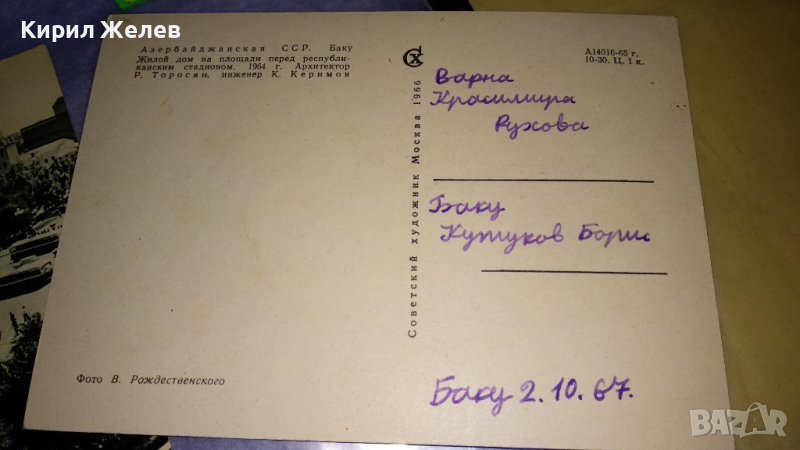 Кирил Желев
Азербайджанская ССР. Баку
Жилой дом на площади перед республи-
канским стадионом. 1964 г. Архитектор
Р. Торосян, инженер К. Керимов
Фото В. Рождественского
Советский художник Москва 1966
СХ
А14016-65 г.
10-30. Ц. 1 к.
Варна
Красимира
Рухова
Баку
Кутуков Борис
Баку 2.10.67.
BAZAR